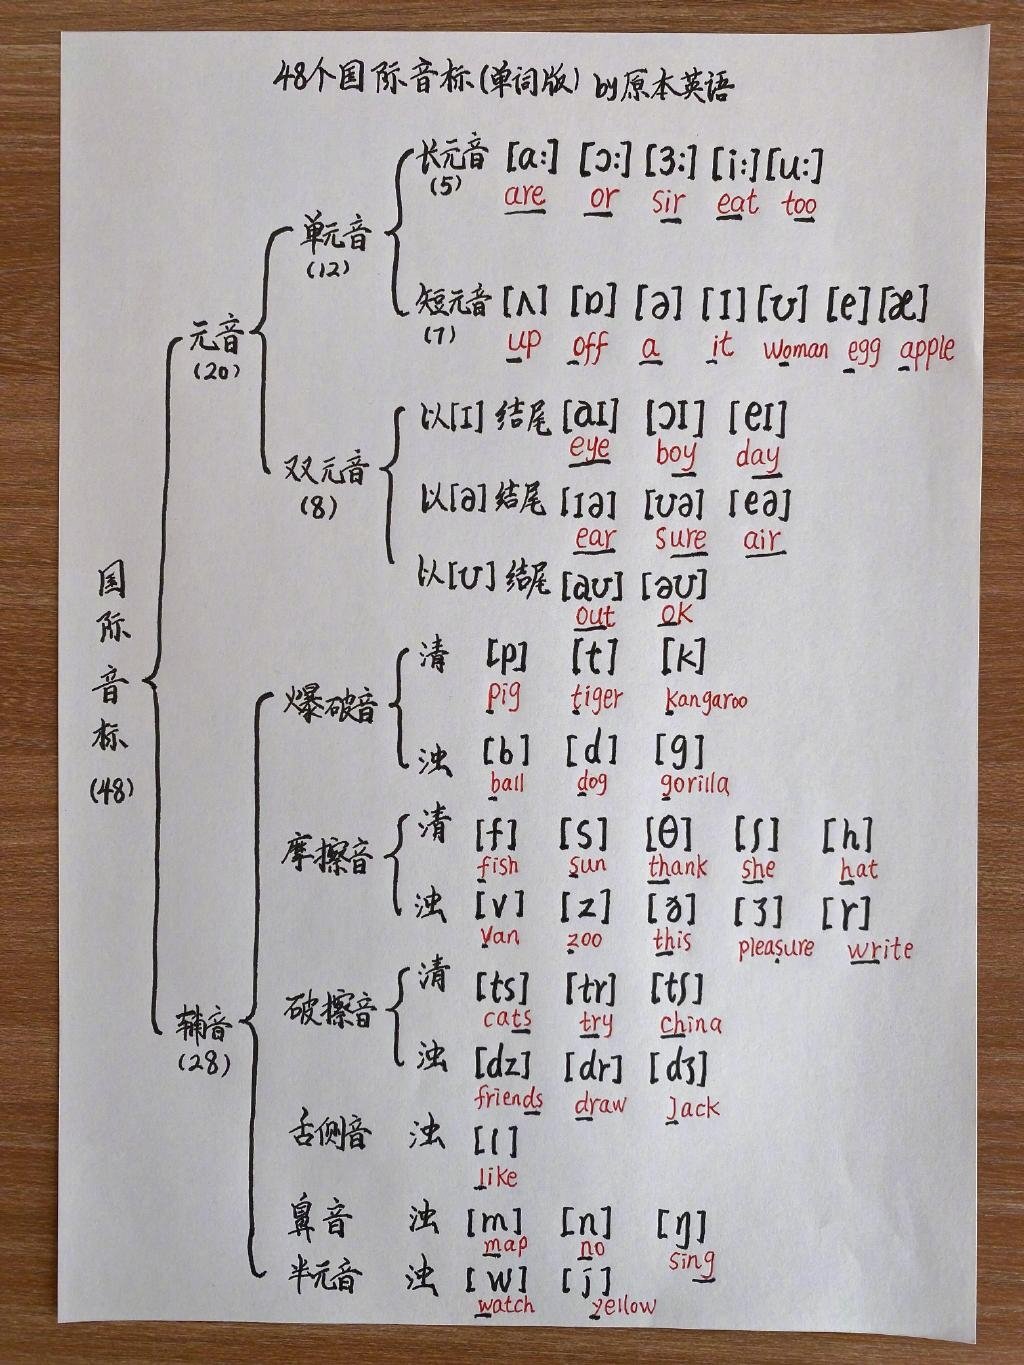 48个国际音标(单词版) by原本英语
长元音 [a:] [ɔ:] [ɜ:] [i:] [u:]
(5) are or sir eat too
单元音
(12)
短元音 [ʌ] [ɒ] [ə] [ɪ] [ʊ] [e] [æ]
(7) up off a it woman egg apple
元音
(20)
以[ɪ]结尾 [aɪ] [ɔɪ] [eɪ]
eye boy day
双元音
(8)
以[ə]结尾 [ɪə] [ʊə] [eə]
ear sure air
以[ʊ]结尾 [aʊ] [əʊ]
out ok
国际音标
(48)
清 [p] [t] [k]
pig tiger kangaroo
爆破音
浊 [b] [d] [g]
ball dog gorilla
清 [f] [s] [θ] [ʃ] [h]
fish sun thank she hat
摩擦音
浊 [v] [z] [ð] [ʒ] [r]
van zoo this pleasure write
清 [ts] [tr] [tʃ]
cats try china
破擦音
辅音
(28)
浊 [dz] [dr] [dʒ]
friends draw Jack
舌侧音 浊 [l]
like
鼻音 浊 [m] [n] [ŋ]
map no sing
半元音 浊 [w] [j]
watch yellow